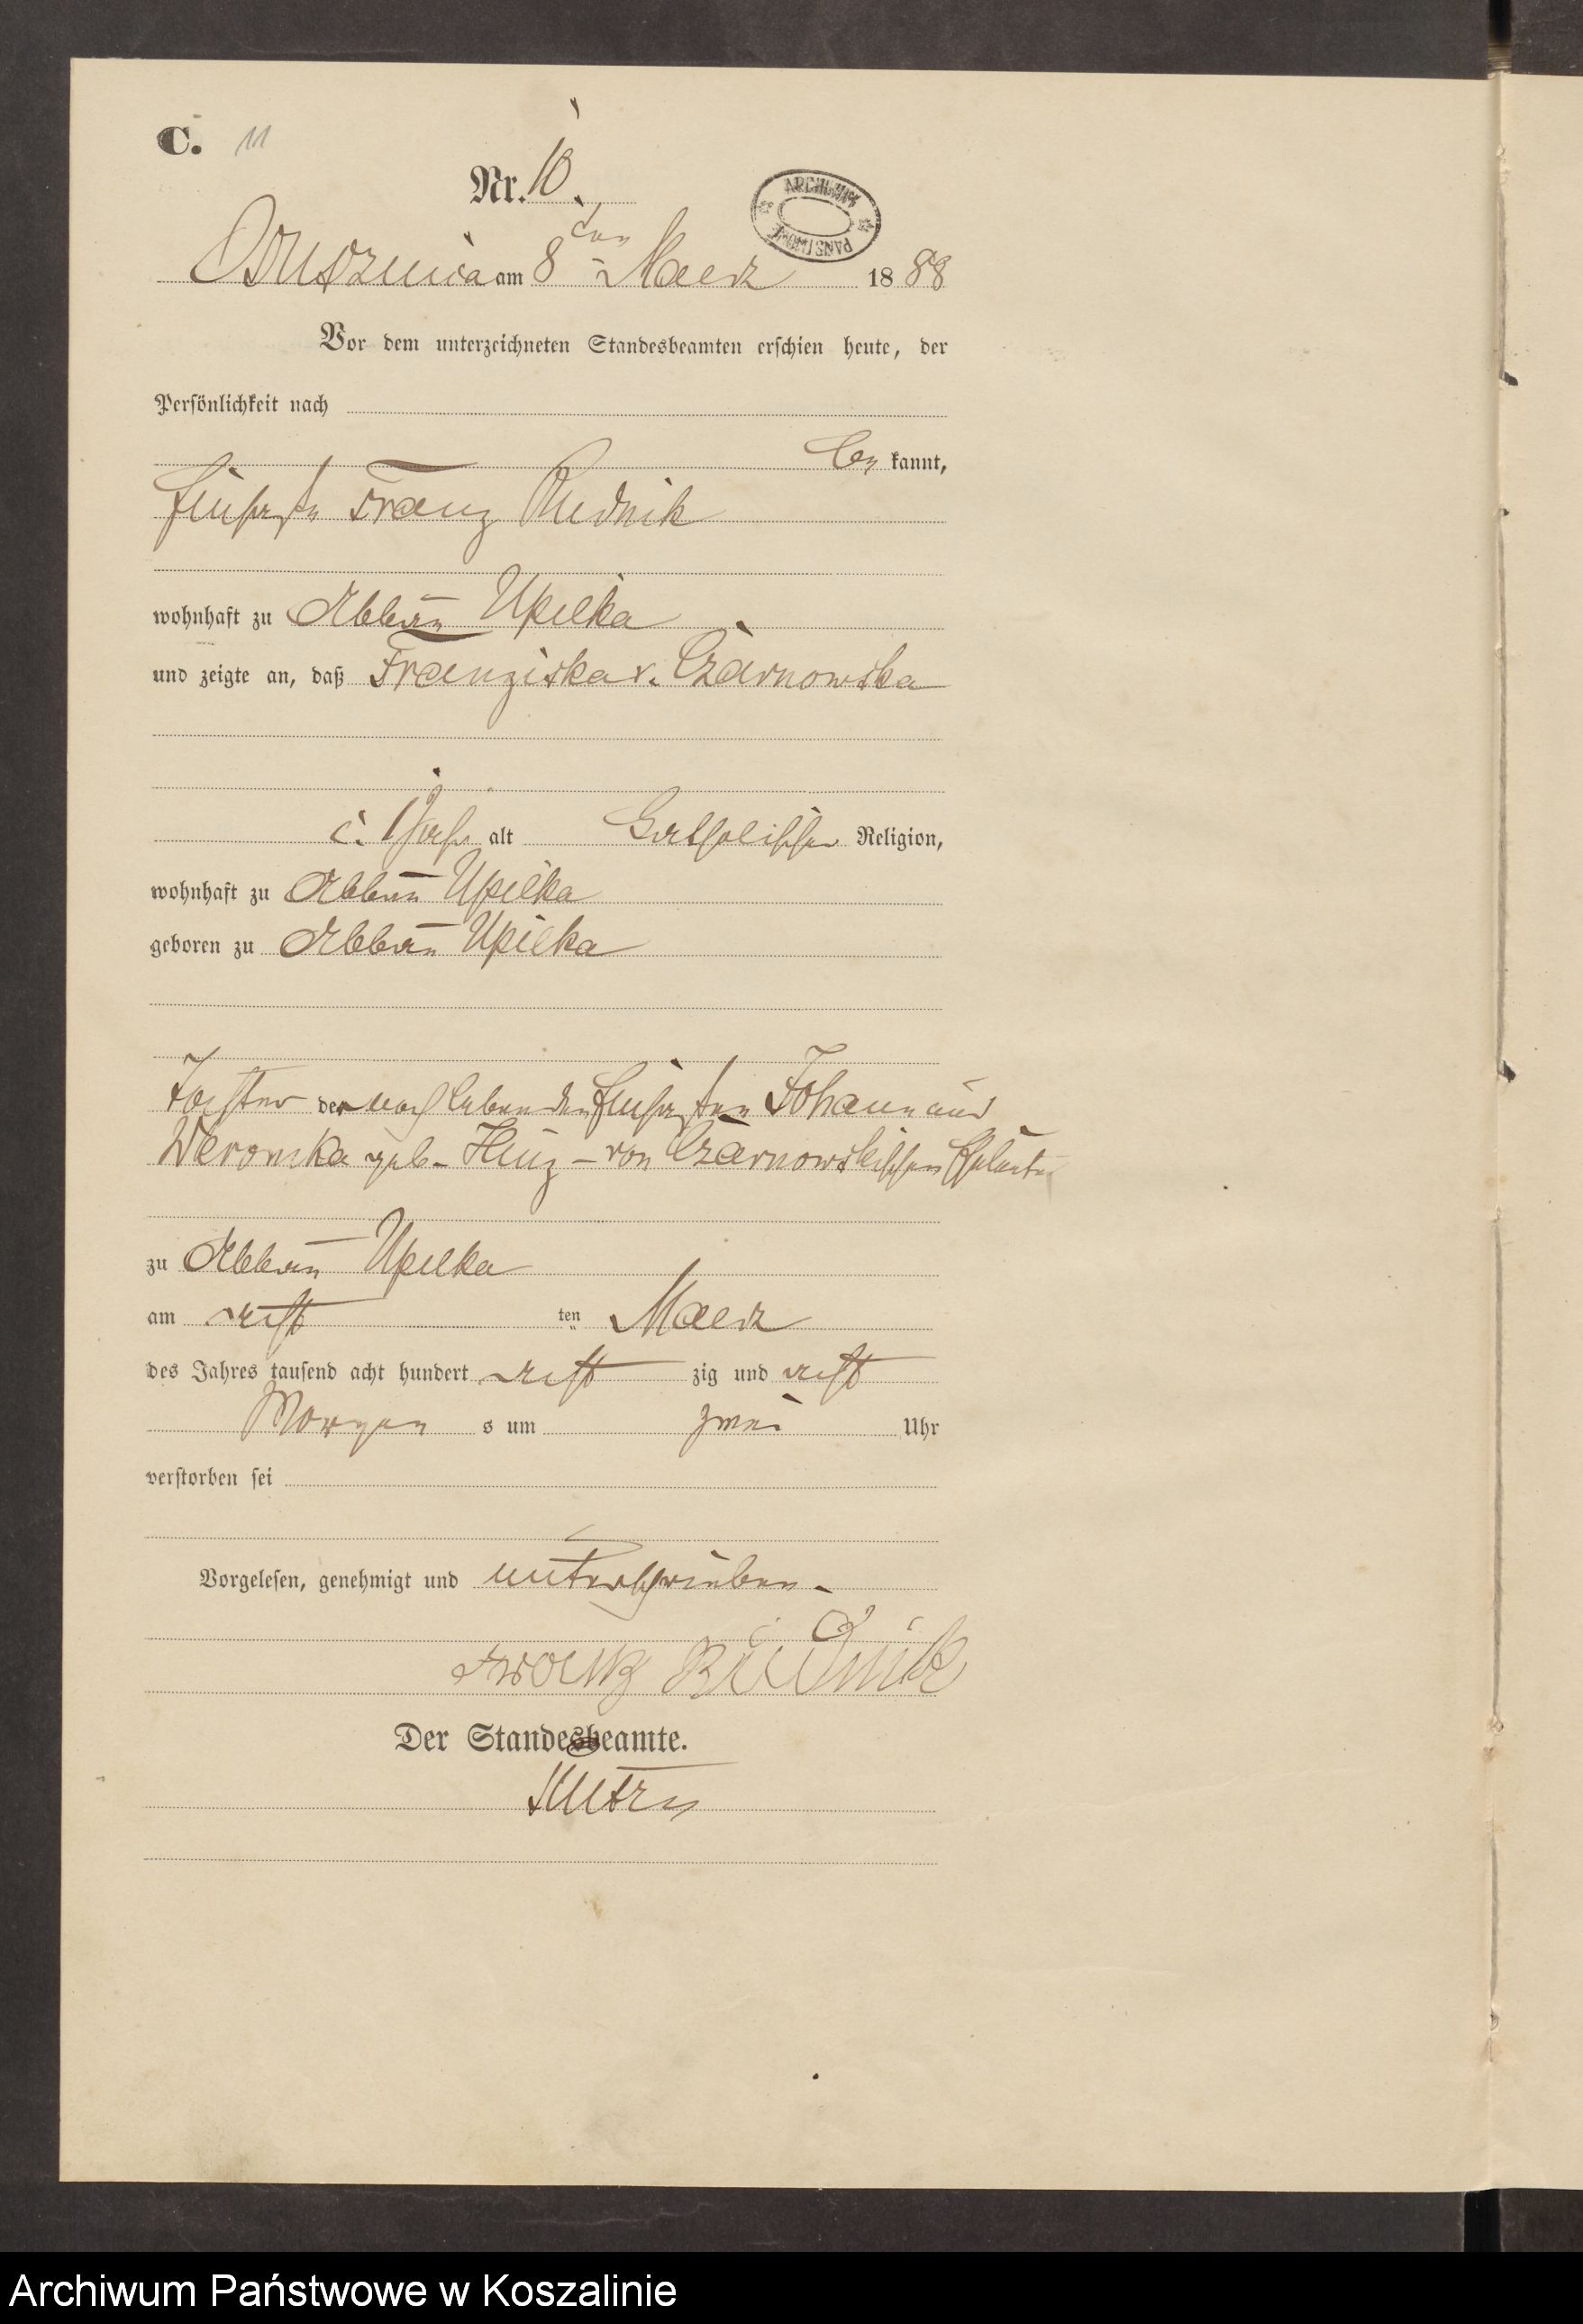 C. 11
Nr. 10.
ARCHIWUM PAŃSTWOWE
Ossusznica am 8ten Maerz 1888
Vor dem unterzeichneten Standesbeamten erschien heute, der
Persönlichkeit nach
be kannt,
Franz Rudnik
wohnhaft zu Abbau Upilka
und zeigte an, daß Franziska v. Czarnowska
1 Jahr alt Catholischer Religion,
wohnhaft zu Abbau Upilka
geboren zu Abbau Upilka
Tochter der noch lebenden Johann und
Weronika geb. Hinz - von Czarnowskischen Eheleute
zu Abbau Upilka
am acht ten Maerz
des Jahres tausend acht hundert acht zig und acht
Morgen s um zwei Uhr
verstorben sei
Vorgelesen, genehmigt und unterschrieben.
Franz Rudnik
Der Standesbeamte.
Archiwum Państwowe w Koszalinie